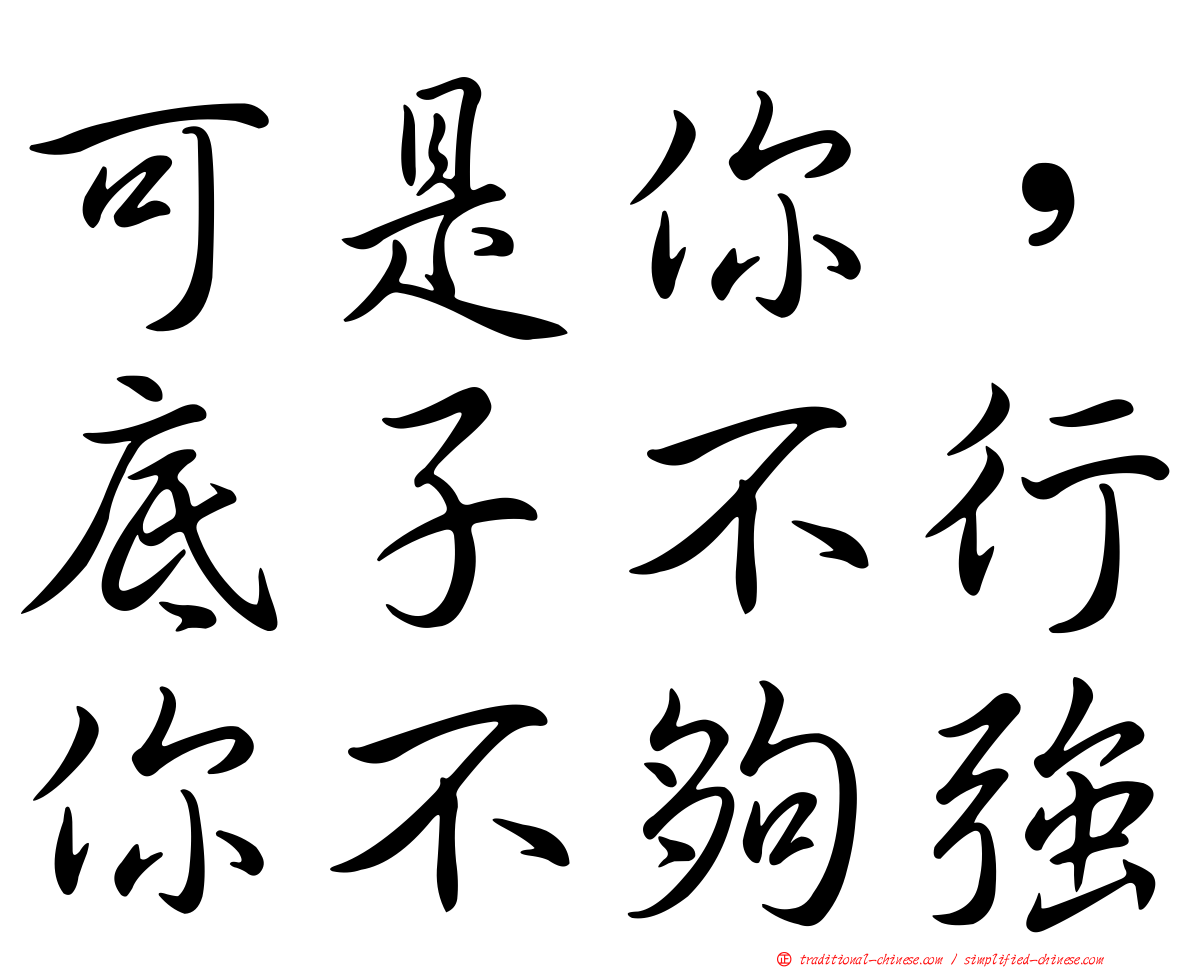 可是你，
底子不行
你不夠強
㊣ traditional-chinese.com / simplified-chinese.com